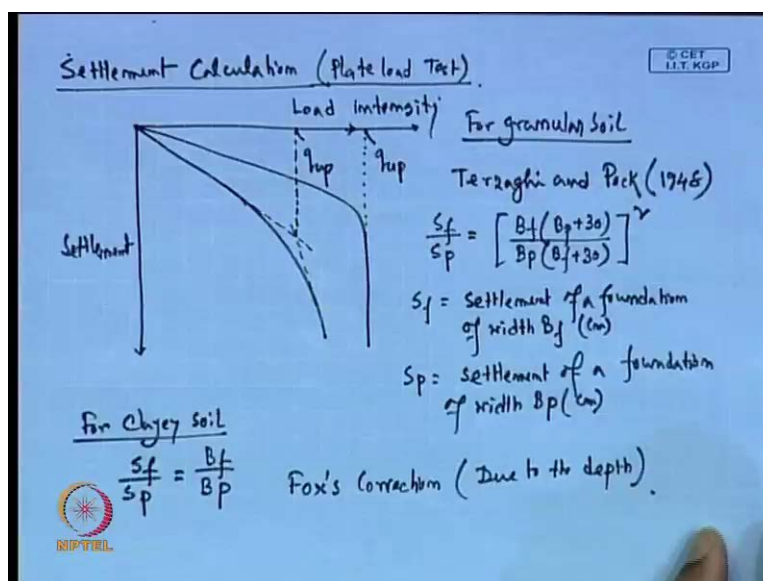 Settlement Calculation (Plate load Test).
© CET
I.I.T. KGP
Load Intensity
qup
qup
Settlement
For granular soil
Terzaghi and Peck (1948)
Sf/Sp = [Bf(Bp+30)/Bp(Bf+30)]²
Sf = settlement of a foundation
of width Bf (cm)
Sp = settlement of a foundation
of width Bp (cm)
For Clayey Soil
Sf/Sp = Bf/Bp
Fox's Correction (Due to the depth).
NPTEL